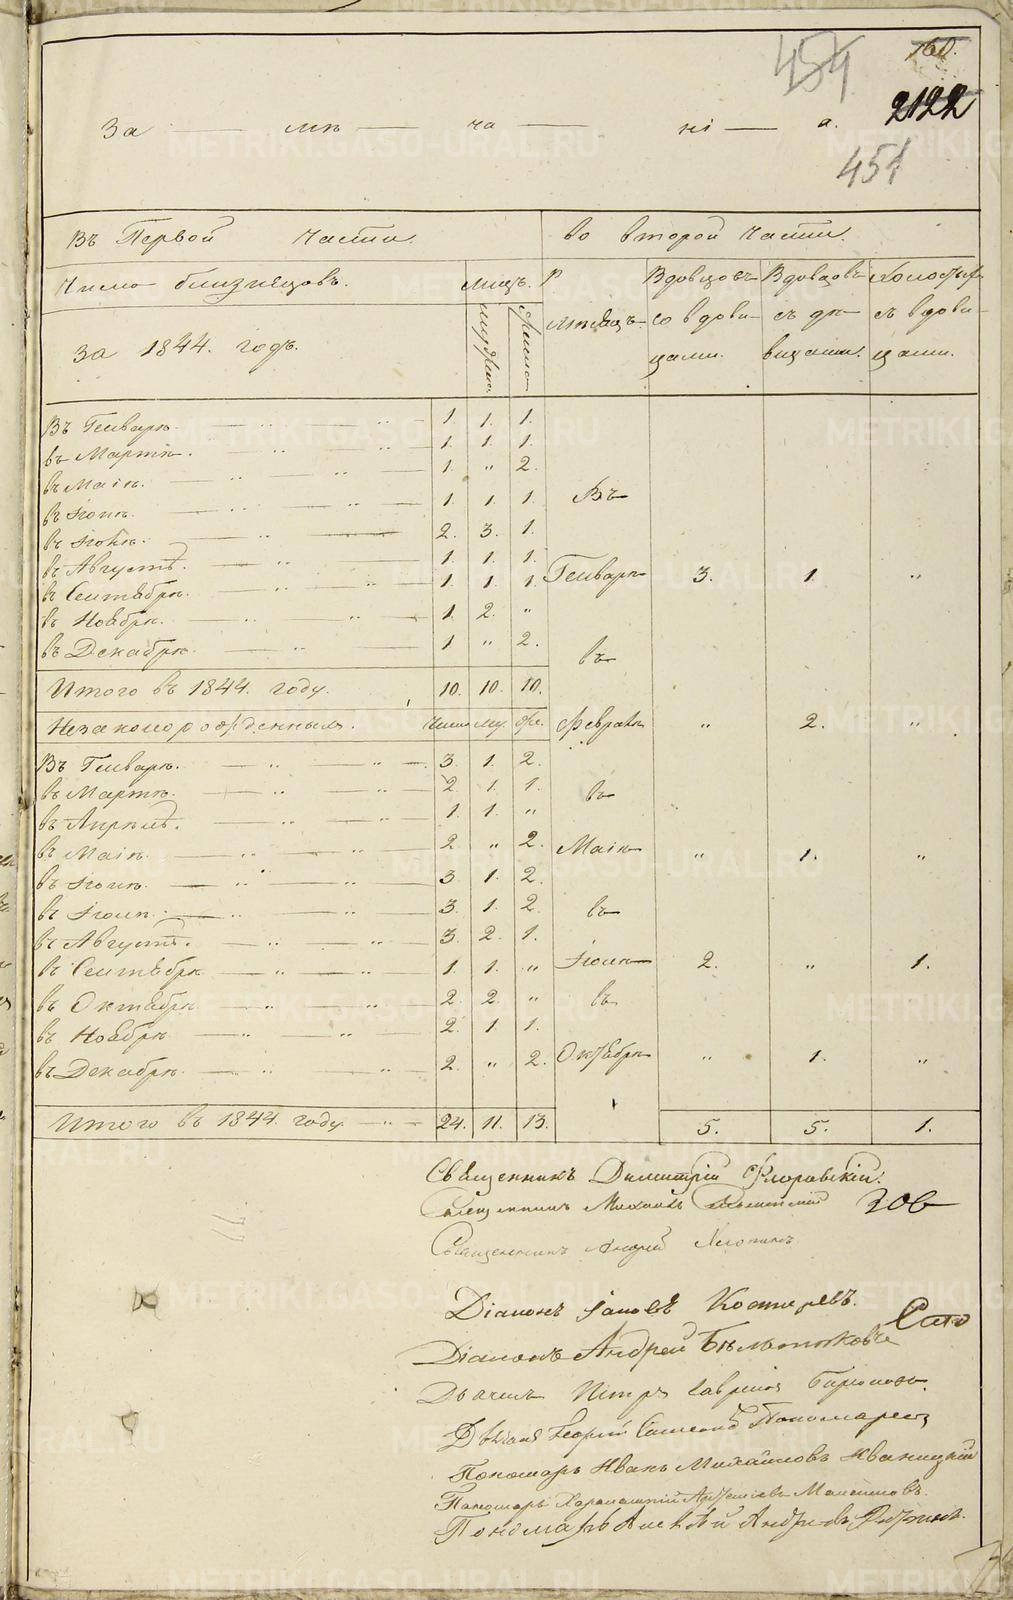 454
160.
2122
За — мѣ — ча — ні — а.
451
Въ Первой Части.
Во второй Части.
Число близнецовъ.
За 1844. годъ.
Лицъ.
мужска.
женска.
Вдовцовъ со вдовицами.
Вдовцовъ съ дѣвицами.
Холостыхъ съ вдовицами.
Въ Генварѣ. 1. 1. 1.
въ Мартѣ. 1. 1. 1.
въ Маіѣ. 1. " 2.
въ Іюнѣ. 1. 1. 1.
въ Іюлѣ. 2. 3. 1.
въ Августѣ. 1. 1. 1.
въ Сентябрѣ. 1. 1. 1.
въ Ноябрѣ. 1. 2. "
въ Декабрѣ 1. " 2.
Итого въ 1844. году. 10. 10. 10.
Незаконнорожденныхъ. Число му. же.
Въ Генварѣ. 3. 1. 2.
въ Мартѣ. 2. 1. 1.
въ Апрѣлѣ. 1. 1. "
въ Маіѣ. 2. " 2.
въ Іюнѣ. 3. 1. 2.
въ Іюлѣ. 3. 1. 2.
въ Августѣ. 3. 2. 1.
въ Сентябрѣ 1. 1. "
въ Октябрѣ 2. 2. "
въ Ноябрѣ 2. 1. 1.
въ Декабрѣ. 2. " 2.
Итого въ 1844. году 24. 11. 13.
Въ Генварѣ 3. 1. "
въ Февралѣ " 2. "
въ Маіѣ " 1. "
въ Іюлѣ 2. " 1.
въ Октябрѣ " 1. "
5. 5. 1.
Священникъ Димитрій Флоровскій.
Священникъ Михаилъ
Священникъ Андрей
Діаконъ Іаковъ Костыревъ.
Діаконъ Андрей
Дьячекъ Петръ
Дьячекъ Георгій Пономаревъ
Пономарь Иванъ Михайловъ Иваницкій
Пономарь
Пономарь Алексѣй Андреевъ
METRIKI.GASO-URAL.RU